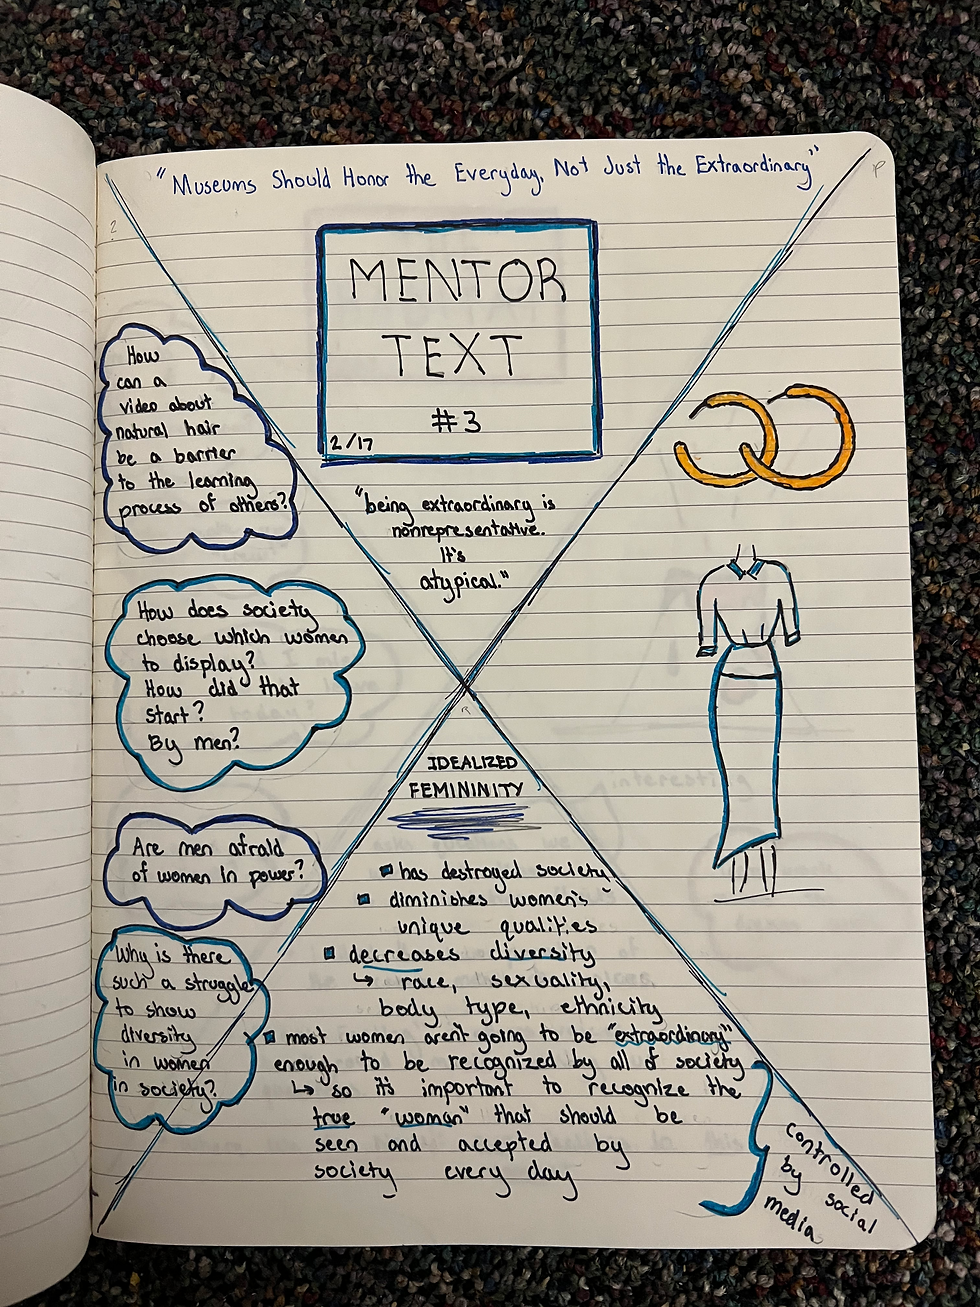 "Museums Should Honor the Everyday, Not Just the Extraordinary"
P
2
MENTOR
TEXT
#3
2/17
"being extraordinary is
nonrepresentative.
It's
atypical."
How
can a
video about
natural hair
be a barrier
to the learning
process of others?
How does society
choose which women
to display?
How did that
start?
By men?
Are men afraid
of women in power?
Why is there
such a struggle
to show
diversity
in women
in society?
R
IDEALIZED
FEMININITY
has destroyed society
diminishes women's
unique qualities
decreases diversity
↳ race, sexuality,
body type, ethnicity
most women aren't going to be "extraordinary"
enough to be recognized by all of society
↳ so it's important to recognize the
true "woman" that should be
seen and accepted by
society every day
controlled
by social
media